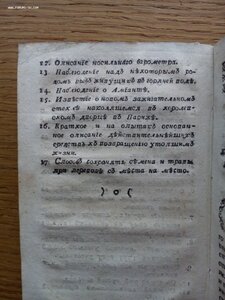 www.forums-su.com
12. Описаніе носильнаго барометра.
13. Наблюденіе надъ нѣкоторымъ ро-
домъ рыбъ живущихъ въ горячей водѣ.
14. Наблюденіе о Аміантѣ.
15. Извѣстіе о новомъ зажигательномъ
стеклѣ находящемся въ королев-
скомъ дворцѣ въ Парижѣ.
16. Краткое и на опытахъ основан-
ное описаніе дѣйствительнѣйшихъ
средствъ къ возвращенію утопшимъ
жизни.
17. Способъ сохранять сѣмена и травы
при перевозѣ съ мѣста на мѣсто.